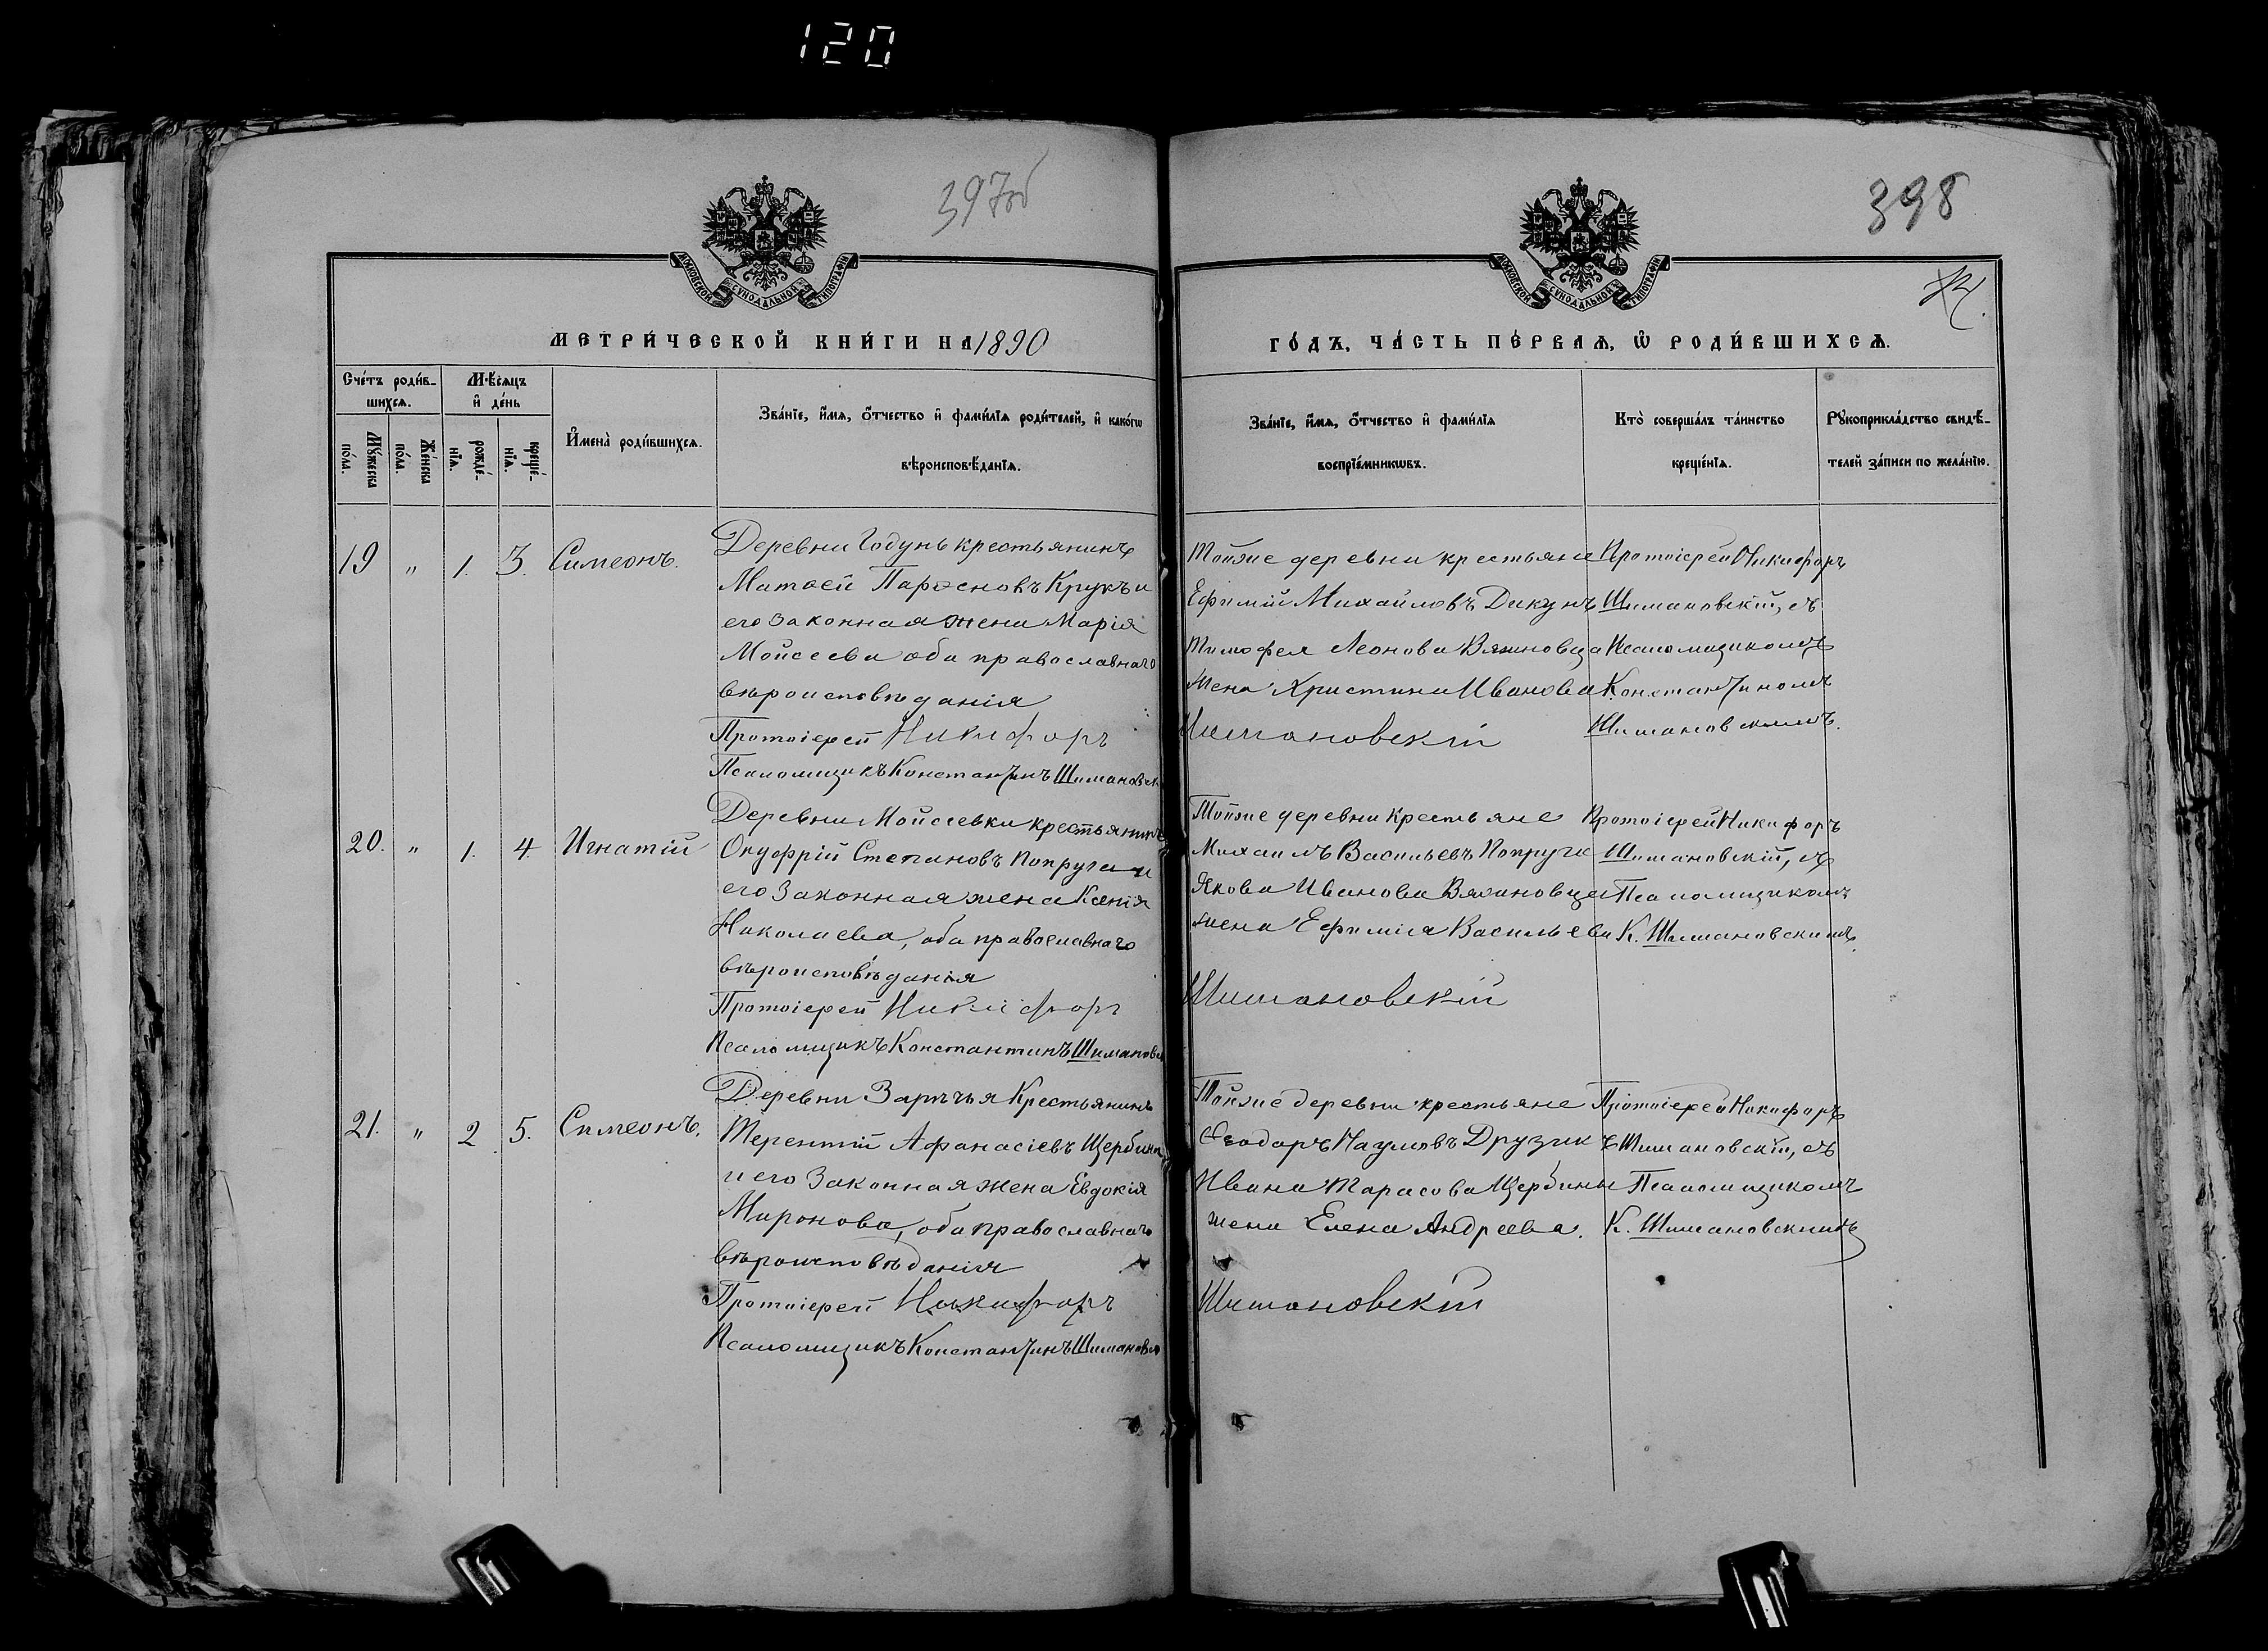 120
397об
398
МОСКОВСКОЙ СѴНОДАЛЬНОЙ ТИПОГРАФІИ
МОСКОВСКОЙ СѴНОДАЛЬНОЙ ТИПОГРАФІИ
МЕТРИ́ЧЕСКОЙ КНИ́ГИ НА 1890
ГО́ДЪ, ЧА́СТЬ ПЕ́РВАЯ, Ѽ РОДИ́ВШИХСѦ.
Сче́тъ роди́в-
шихсѧ.
Мѣ́сѧцъ
и҆ де́нь
Мꙋ́жеска
по́ла.
Же́нска
по́ла.
рожде́-
нїѧ.
креще́-
нїѧ.
И҆мена̀ роди́вшихсѧ.
Зва́нїе, и҆́мѧ, ѻ҆́тчество и҆ фами́лїѧ роди́телей, и҆ како́гѡ
вѣроисповѣ́данїѧ.
Зва́нїе, и҆́мѧ, ѻ҆́тчество и҆ фами́лїѧ
воспрїе́мникѡвъ.
Кто̀ соверша́лъ та́инство
креще́нїѧ.
Рꙋкоприкла́дство свидѣ́-
телей за́писи по жела́нїю.
19 " 1. 3. Симеонъ.
Деревни Годунь крестьянинъ
Матѳей Парѳеновъ Крукъ и
его законная жена Марія
Мойсеева оба православнаго
вѣроисповѣданія
Протоіерей Никифоръ
Псаломщикъ Константинъ Шимановск
Тойже деревни крестьяне
Ефимій Михайловъ Дикунъ
Тимофея Леонова Вяхновца
жена Христина Иванова
Шимановскій
Протоіерей Никифоръ
Шимановскій, съ
Псаломщикомъ
Константиномъ
Шимановскимъ.
20. " 1. 4. Игнатій
Деревни Мойсеевки крестьянинъ
Онуфрій Степановъ Попруга и
его законная жена Ксенія
Николаева, оба православнаго
вѣроисповѣданія
Протоіерей Никифоръ
Псаломщикъ Константинъ Шимановск
Тойже деревни крестьяне
Михаилъ Васильевъ Попруга
Якова Иванова Вяхновца
жена Ефимія Васильева
Шимановскій
Протоіерей Никифоръ
Шимановскій, съ
Псаломщикомъ
К. Шимановскимъ.
21. " 2 5. Симеонъ.
Деревни Зарѣчья Крестьянинъ
Терентій Афанасіевъ Щербина
и его законная жена Евдокія
Миронова, оба православнаго
вѣроисповѣданія
Протоіерей Никифоръ
Псаломщикъ Константинъ Шимановск
Тойже деревни крестьяне
Ѳеодоръ Наумовъ Друзикъ
Ивана Тарасова Щербины
жена Елена Андреева.
Шимановскій
Протоіерей Никифоръ
Шимановскій, съ
Псаломщикомъ
К. Шимановскимъ